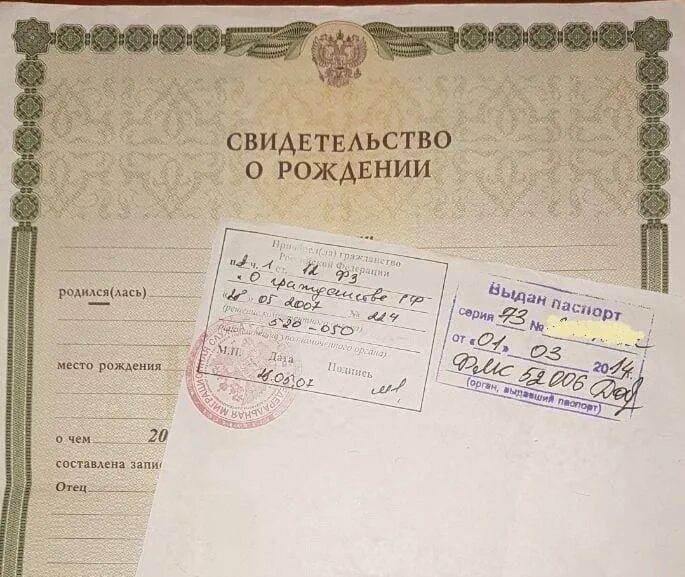 СВИДЕТЕЛЬСТВО
О РОЖДЕНИИ
родился(лась)
место рождения
о чем 20
составлена запи
Отец
Приобрел(ла) гражданство
Российской Федерации
ч. 1 ст. 12 ФЗ
"О гражданстве РФ
"28" 05 2007 № 224
520-050
М.П. Дата Подпись
28.05.07
ФЕДЕРАЛЬНАЯ МИГРАЦИОН
Выдан паспорт
серия 73 №
от «01» 03 2014
ФМС 52006
(орган, выдавший паспорт)